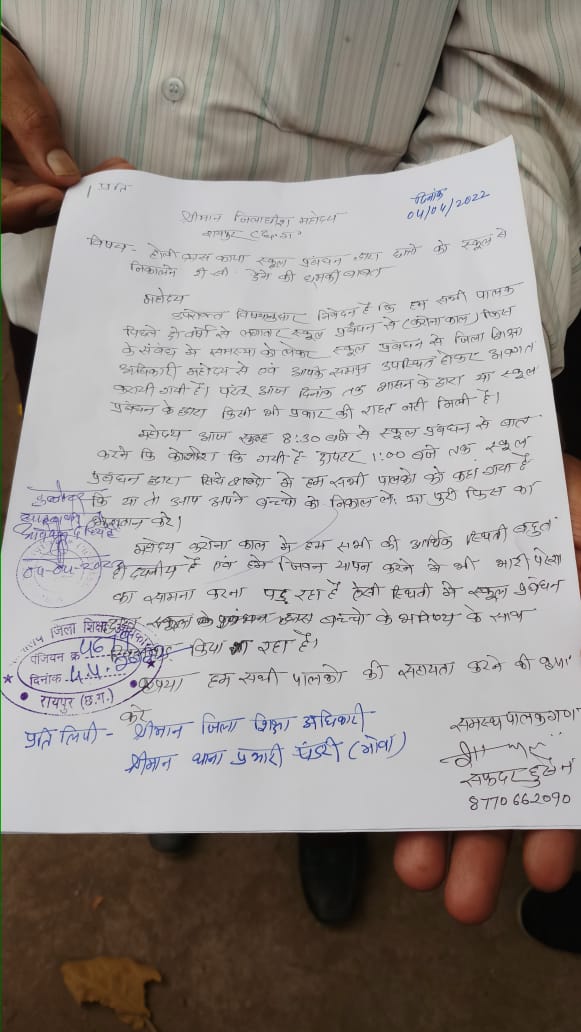 प्रति
दिनांक
04/04/2022
श्रीमान जिलाधीश महोदय
रायपुर (छ.ग.)
विषय- होली क्रास कापा स्कूल प्रबंधन द्वारा छात्रो को स्कूल से
निकालने की धमकी बाबत
महोदय
उपरोक्त विषयानुसार निवेदन है कि हम सभी पालक
पिछले दो वर्षो से लगातार स्कूल प्रबंधन से (करोनाकाल) फिस
के संबंध मे समस्या को लेकर स्कूल प्रबंधन से जिला शिक्षा
अधिकारी महोदय से एवं आपके समक्ष उपस्थित होकर अवगत
करायी गयी है। परंतु आज दिनांक तक शासन के द्वारा या स्कूल
प्रबंधन के द्वारा किसी भी प्रकार की राहत नही मिली है।
महोदय आज सुबह 8:30 बजे से स्कूल प्रबंधन से बात
करने कि कोशीश कि गयी है 1:00 बजे तक स्कूल
प्रबंधन द्वारा सिधे शब्दो मे हम सभी पालको को कहा गया है
कि या तो आप अपने बच्चो को निकाल ले। या पुरी फिस का
भुगतान करे।
महोदय करोना काल मे हम सभी की आर्थिक स्थिती बहुत
ही दयनीय है एवं हमे जिवन यापन करने मे भी भारी
का सामना करना पड़ रहा है ऐसी स्थिती मे स्कूल प्रबंधन
बच्चो के भविष्य के साथ
किया जा रहा है।
कृपया हम सभी पालको की सहायता करने की कृपा
करे
04-04-2022
जिला शिक्षा
पंजियन क्र. 46
दिनांक 4.4.
रायपुर (छ.ग.)
प्रति लिपी - श्रीमान जिला शिक्षा अधिकारी
श्रीमान थाना प्रभारी पंडरी (मोवा)
समस्थ पालकगण
सफदर हुसैन
8770662090